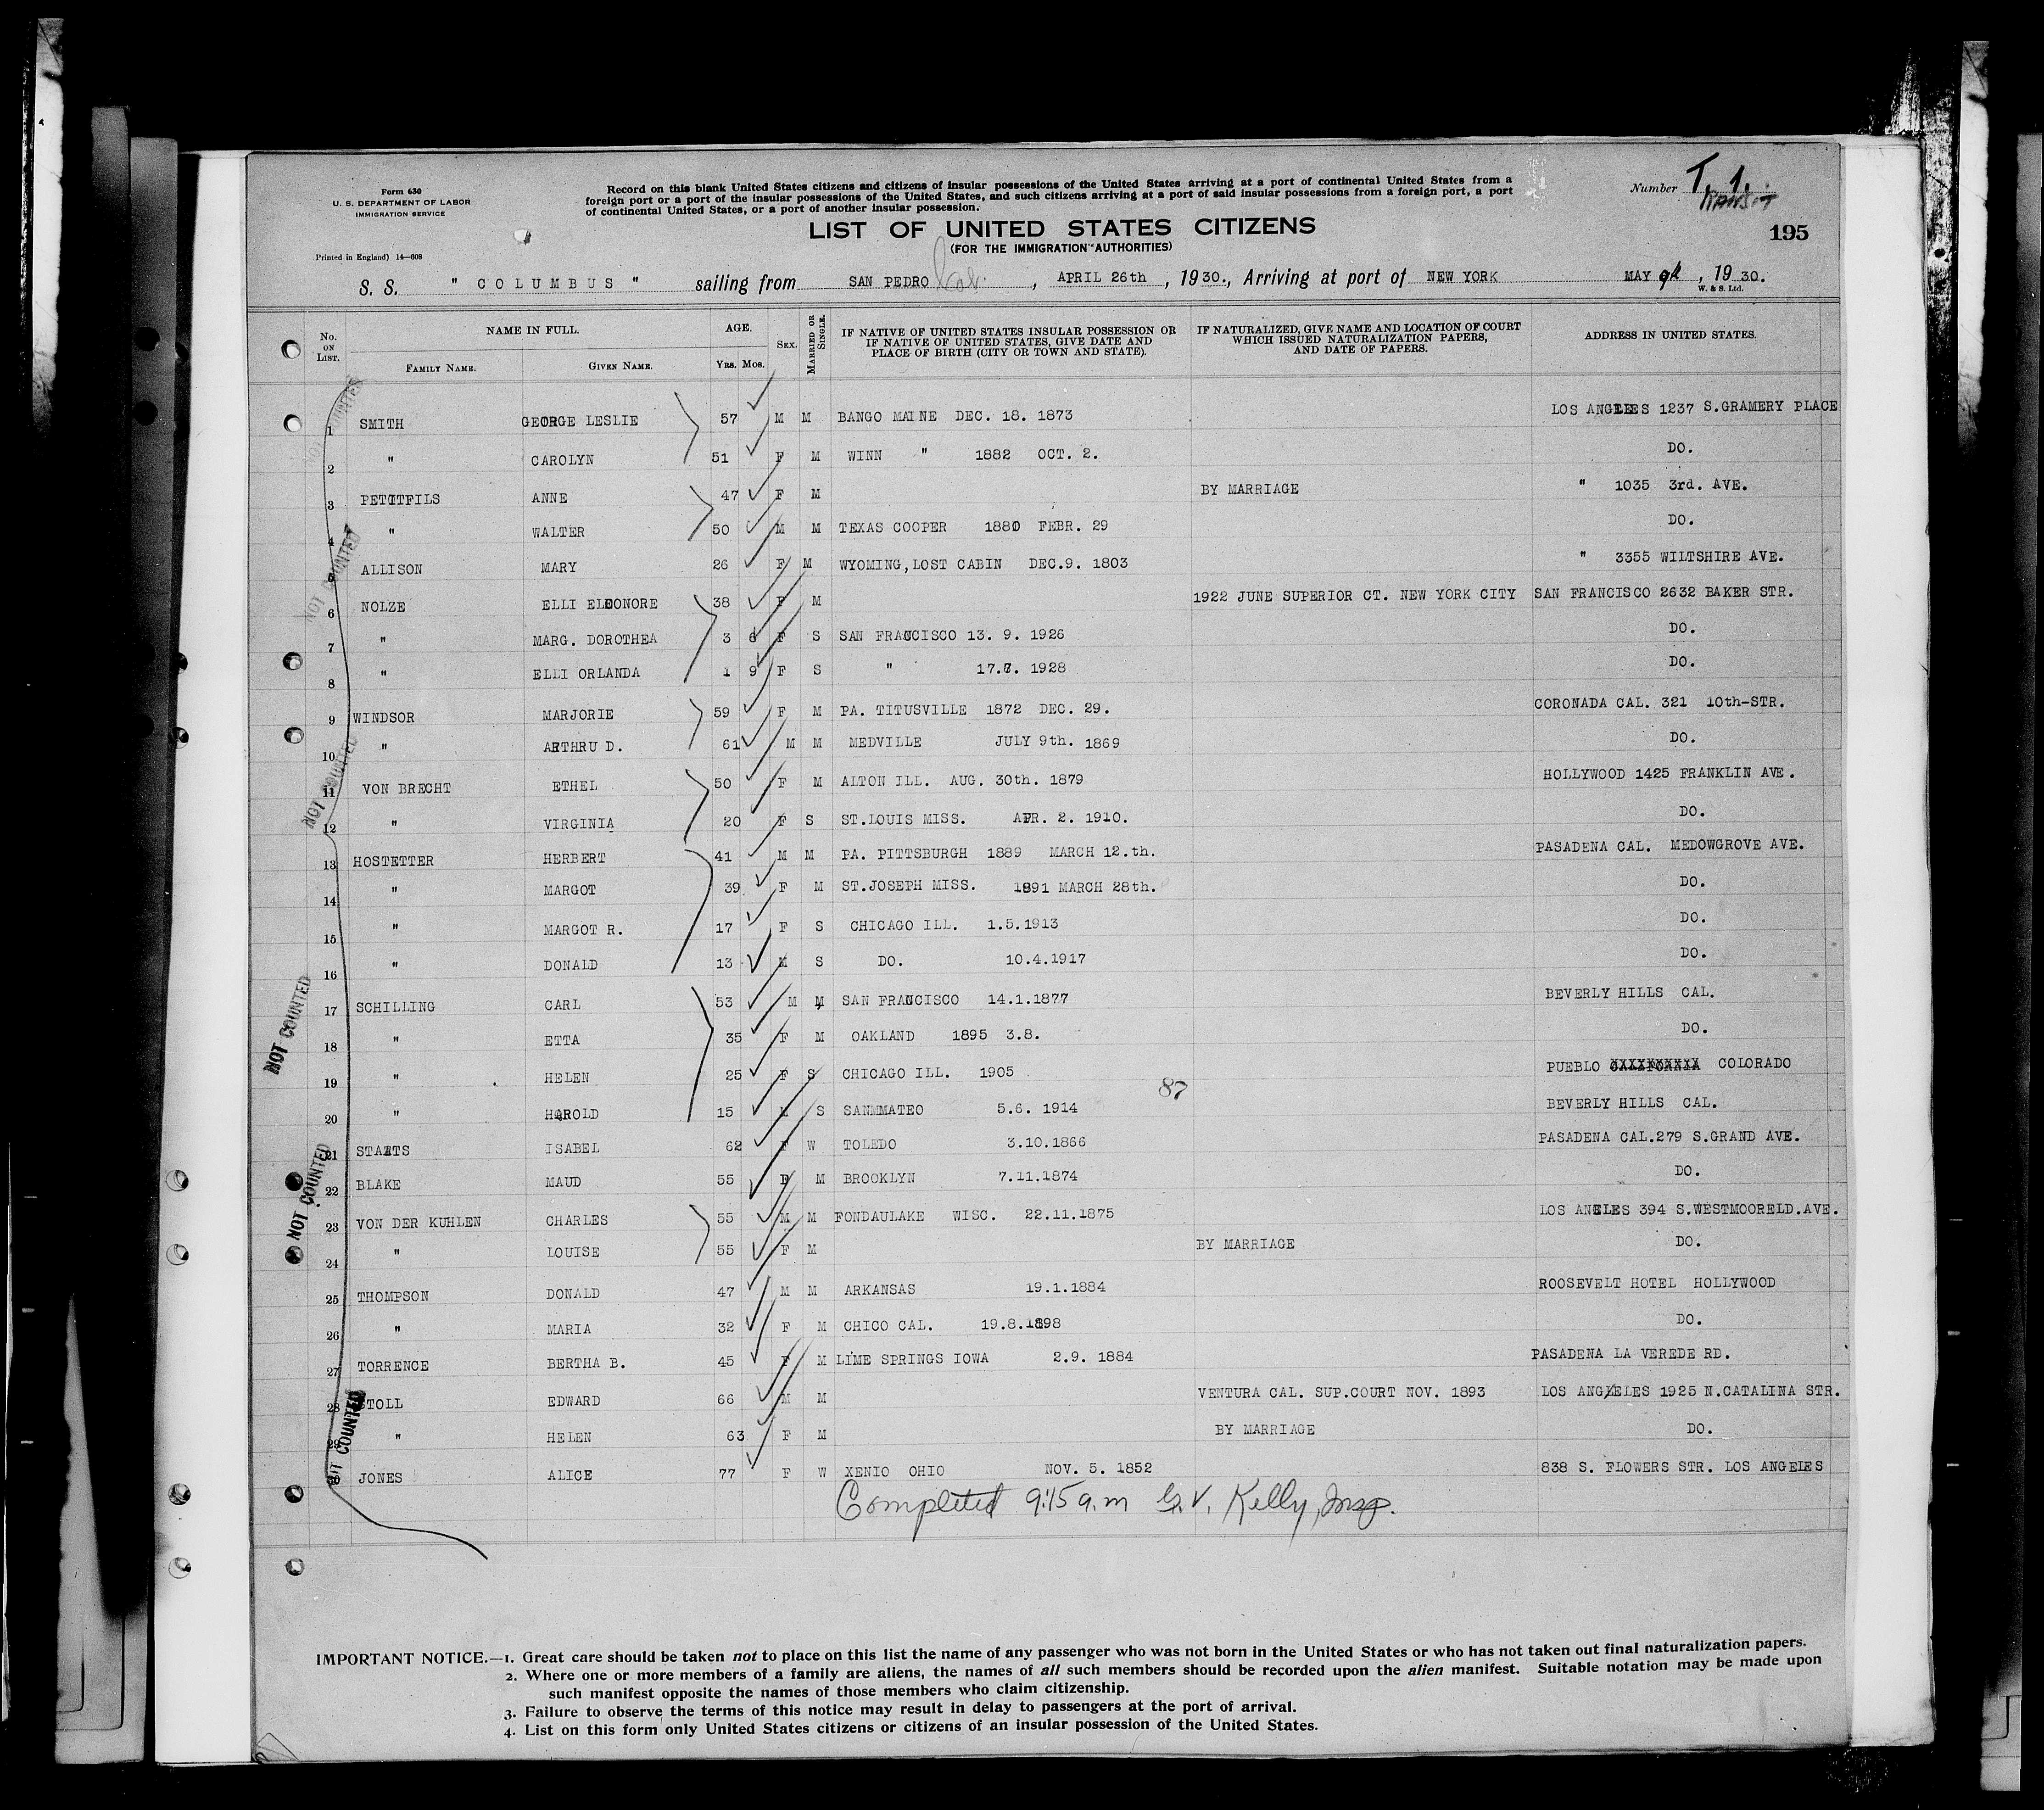 Form 630
U. S. DEPARTMENT OF LABOR
IMMIGRATION SERVICE
Printed in England) 14—608
Record on this blank United States citizens and citizens of insular possessions of the United States arriving at a port of continental United States from a
foreign port or a port of the insular possessions of the United States, and such citizens arriving at a port of said insular possessions from a foreign port, a port
of continental United States, or a port of another insular possession.
Number T. 1.
Transit
195
LIST OF UNITED STATES CITIZENS
(FOR THE IMMIGRATION AUTHORITIES)
S. S. " COLUMBUS " sailing from SAN PEDRO Cal. , APRIL 26th , 1930., Arriving at port of NEW YORK MAY 9th , 1930.
W. & S. Ltd.
No. ON LIST. NAME IN FULL. FAMILY NAME. GIVEN NAME. AGE. YRS. MOS. SEX. MARRIED OR SINGLE. IF NATIVE OF UNITED STATES INSULAR POSSESSION OR IF NATIVE OF UNITED STATES, GIVE DATE AND PLACE OF BIRTH (CITY OR TOWN AND STATE). IF NATURALIZED, GIVE NAME AND LOCATION OF COURT WHICH ISSUED NATURALIZATION PAPERS, AND DATE OF PAPERS. ADDRESS IN UNITED STATES.
1 SMITH GEORGE LESLIE 57 M M BANGO MAINE DEC. 18. 1873 LOS ANGELES 1237 S.GRAMERY PLACE
2 " CAROLYN 51 F M WINN " 1882 OCT. 2. DO.
3 PETITFILS ANNE 47 F M BY MARRIAGE " 1035 3rd. AVE.
4 " WALTER 50 M M TEXAS COOPER 1880 FEBR. 29 DO.
5 ALLISON MARY 26 F M WYOMING,LOST CABIN DEC.9. 1803 " 3355 WILTSHIRE AVE.
6 NOLZE ELLI ELEONORE 38 F M 1922 JUNE SUPERIOR CT. NEW YORK CITY SAN FRANCISCO 2632 BAKER STR.
7 " MARG. DOROTHEA 3 6 F S SAN FRANCISCO 13. 9. 1926 DO.
8 " ELLI ORLANDA 1 9 F S " 17.7. 1928 DO.
9 WINDSOR MARJORIE 59 F M PA. TITUSVILLE 1872 DEC. 29. CORONADA CAL. 321 10th-STR.
10 " ARTHRU D. 61 M M MEDVILLE JULY 9th. 1869 DO.
11 VON BRECHT ETHEL 50 F M ALTON ILL. AUG. 30th. 1879 HOLLYWOOD 1425 FRANKLIN AVE.
12 " VIRGINIA 20 F S ST.LOUIS MISS. APR. 2. 1910. DO.
13 HOSTETTER HERBERT 41 M M PA. PITTSBURGH 1889 MARCH 12.th. PASADENA CAL. MEDOWGROVE AVE.
14 " MARGOT 39 F M ST.JOSEPH MISS. 1891 MARCH 28th. DO.
15 " MARGOT R. 17 F S CHICAGO ILL. 1.5.1913 DO.
16 " DONALD 13 M S DO. 10.4.1917 DO.
17 SCHILLING CARL 53 M M SAN FRANCISCO 14.1.1877 BEVERLY HILLS CAL.
18 " ETTA 35 F M OAKLAND 1895 3.8. DO.
19 " HELEN 25 F S CHICAGO ILL. 1905 PUEBLO COLORADO
87
20 " HAROLD 15 M S SANMMATEO 5.6. 1914 BEVERLY HILLS CAL.
21 STAATS ISABEL 62 F W TOLEDO 3.10.1866 PASADENA CAL.279 S.GRAND AVE.
22 BLAKE MAUD 55 F M BROOKLYN 7.11.1874 DO.
23 VON DER KUHLEN CHARLES 55 M M FONDAULAKE WISC. 22.11.1875 LOS ANELES 394 S.WESTMOORELD.AVE.
24 " LOUISE 55 F M BY MARRIAGE DO.
25 THOMPSON DONALD 47 M M ARKANSAS 19.1.1884 ROOSEVELT HOTEL HOLLYWOOD
26 " MARIA 32 F M CHICO CAL. 19.8.1898 DO.
27 TORRENCE BERTHA B. 45 F M LIME SPRINGS IOWA 2.9. 1884 PASADENA LA VEREDE RD.
28 STOLL EDWARD 66 M M VENTURA CAL. SUP.COURT NOV. 1893 LOS ANGELES 1925 N.CATALINA STR.
29 " HELEN 63 F M BY MARRIAGE DO.
30 JONES ALICE 77 F W XENIO OHIO NOV. 5. 1852 838 S. FLOWERS STR. LOS ANGELES
Completed 9:15 a.m G.V. Kelly, Insp.
NOT COUNTED
NOT COUNTED
NOT COUNTED
NOT COUNTED
NOT COUNTED
NOT COUNTED
IMPORTANT NOTICE.—1. Great care should be taken not to place on this list the name of any passenger who was not born in the United States or who has not taken out final naturalization papers.
2. Where one or more members of a family are aliens, the names of all such members should be recorded upon the alien manifest. Suitable notation may be made upon
such manifest opposite the names of those members who claim citizenship.
3. Failure to observe the terms of this notice may result in delay to passengers at the port of arrival.
4. List on this form only United States citizens or citizens of an insular possession of the United States.